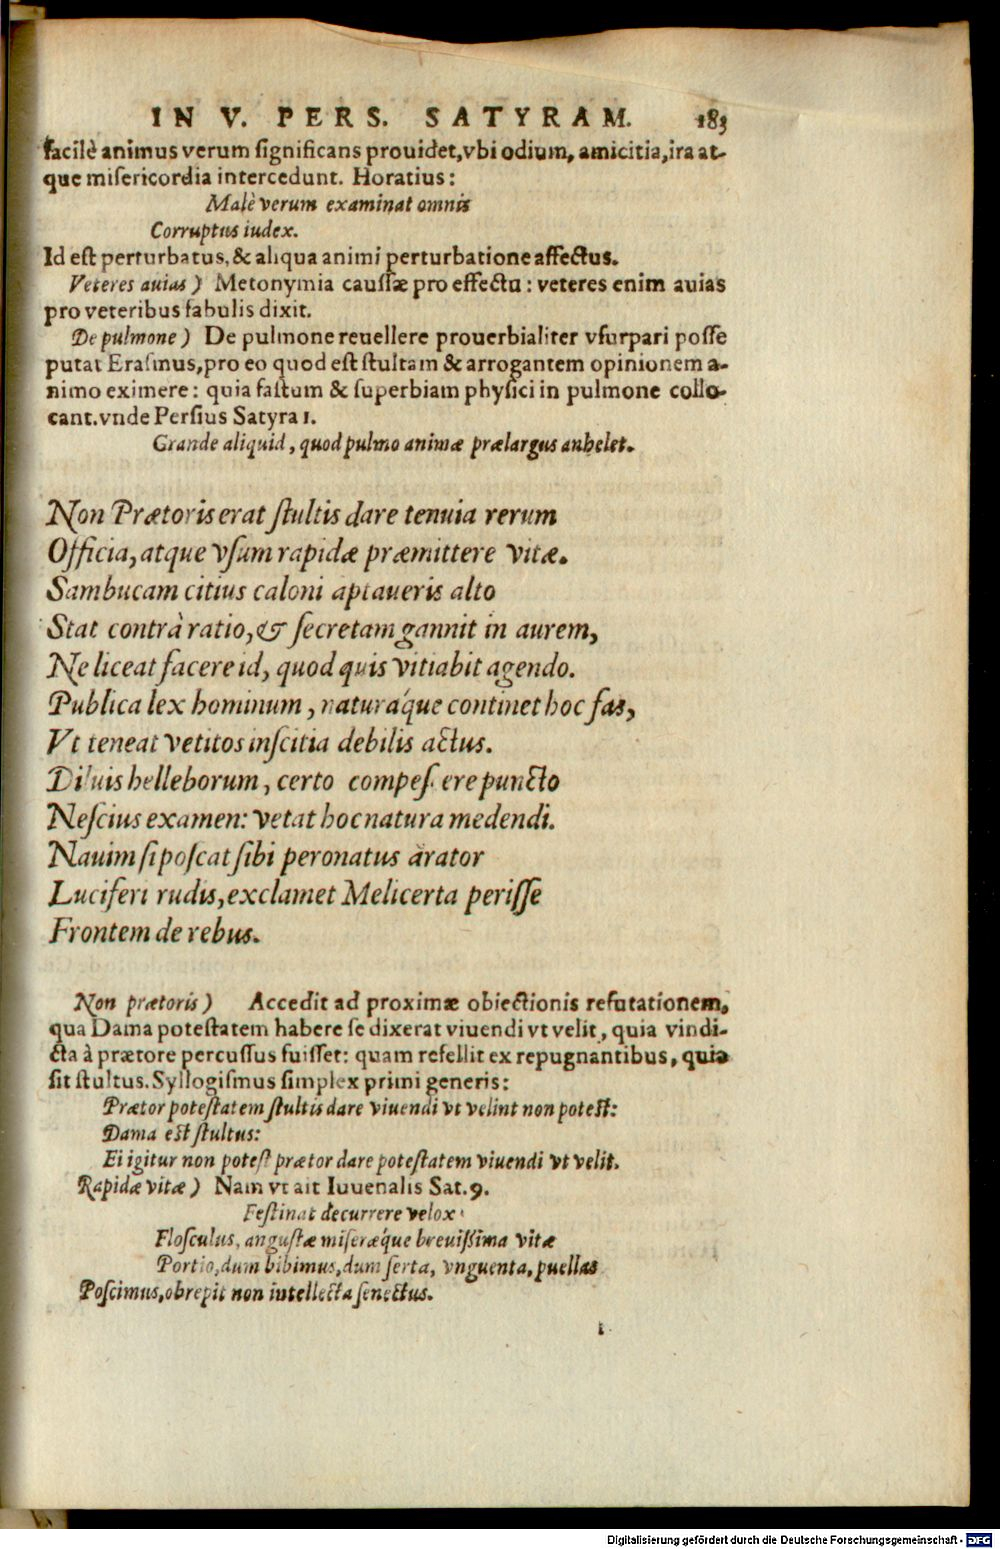 IN V. PERS. SATYRAM. 183
facilè animus verum significans prouidet, vbi odium, amicitia, ira at-
que misericordia intercedunt. Horatius:
Malè verum examinat omnis
Corruptus iudex.
Id est perturbatus, & aliqua animi perturbatione affectus.
Veteres auias) Metonymia caussæ pro effectu: veteres enim auias
pro veteribus fabulis dixit.
De pulmone) De pulmone reuellere prouerbialiter vsurpari posse
putat Erasmus, pro eo quod est stultam & arrogantem opinionem a-
nimo eximere: quia fastum & superbiam physici in pulmone collo-
cant. vnde Persius Satyra 1.
Grande aliquid, quod pulmo animæ prælargus anhelet.
Non Prætoris erat stultis dare tenuia rerum
Officia, atque vsum rapidæ præmittere vitæ.
Sambucam citius caloni aptaueris alto
Stat contrà ratio, & secretam gannit in aurem,
Ne liceat facere id, quod quis vitiabit agendo.
Publica lex hominum, naturáque continet hoc fas,
Vt teneat vetitos inscitia debilis actus.
Diluis helleborum, certo compescere puncto
Nescius examen: vetat hoc natura medendi.
Nauim si poscat sibi peronatus arator
Luciferi rudis, exclamet Melicerta perisse
Frontem de rebus.
Non prætoris) Accedit ad proximæ obiectionis refutationem,
qua Dama potestatem habere se dixerat viuendi vt velit, quia vindi-
cta à prætore percussus fuisset: quam refellit ex repugnantibus, quia
sit stultus. Syllogismus simplex primi generis:
Prætor potestatem stultis dare viuendi vt velint non potest:
Dama est stultus:
Ei igitur non potest prætor dare potestatem viuendi vt velit.
Rapidæ vitæ) Nam vt ait Iuuenalis Sat. 9.
Festinat decurrere velox
Flosculus, angustæ miseræque breuissima vitæ
Portio, dum bibimus, dum serta, vnguenta, puellas
Poscimus, obrepit non intellecta senectus.
Digitalisierung gefördert durch die Deutsche Forschungsgemeinschaft - DFG